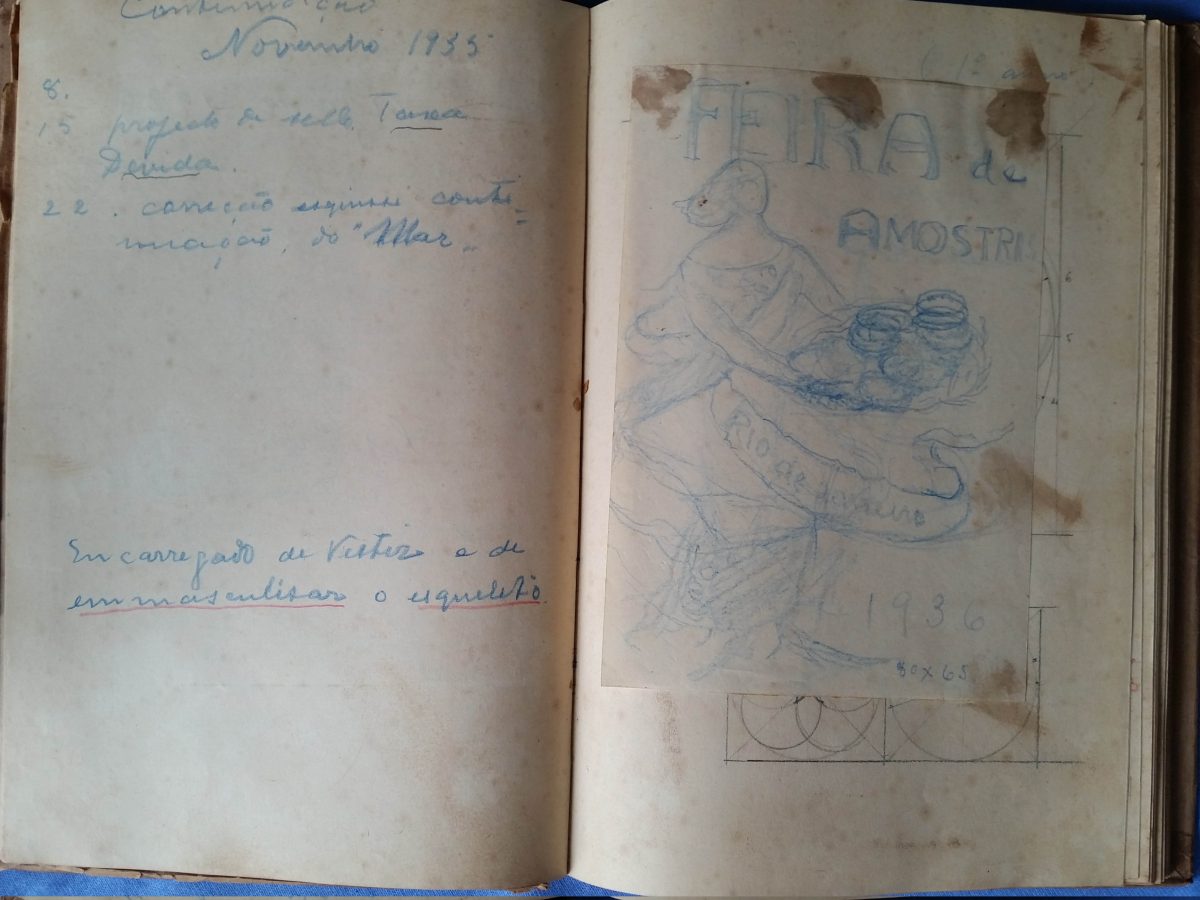 Continuação
Novembro 1935
8.
15 projecto de sello Taxa
Devida.
22. correção esquisse conti=
nuação, do "Mar"
Encarregado de Vestir e de
emmasculisar o esqueleto.
1º anno.
FEIRA de
AMOSTRAS
6
5
Rio de Janeiro
1936
80x65